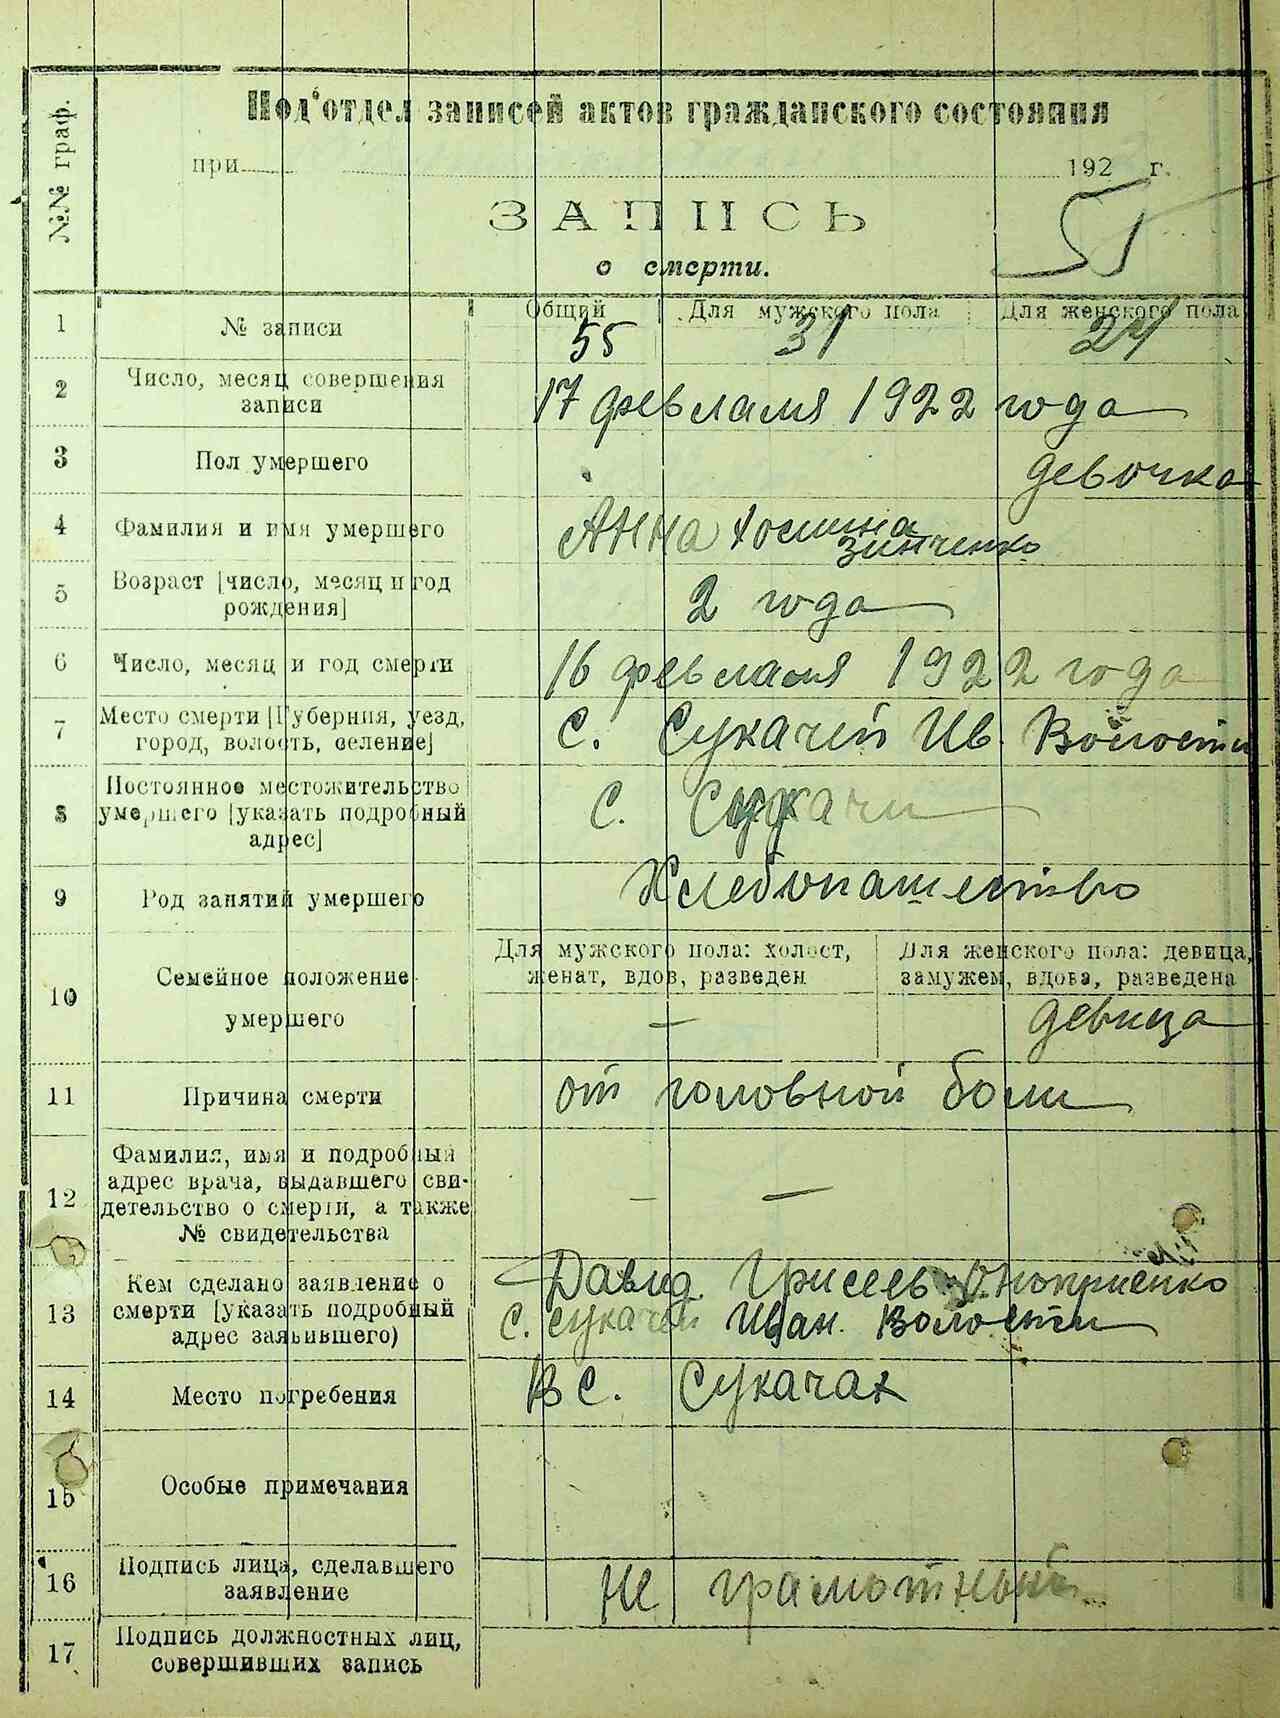 №№ граф.
Под'отдел записей актов гражданского состояния
при 192 г.
ЗАПИСЬ
о смерти.
51
1 № записи Общий Для мужского пола Для женского пола
55 31 24
2 Число, месяц совершения записи
17 февлаля 1922 года
3 Пол умершего
девочка
4 Фамилия и имя умершего
Анна
Зинченко
5 Возраст [число, месяц и год рождения]
2 года
6 Число, месяц и год смерти
16 февлаля 1922 года
7 Место смерти [Губерния, уезд, город, волость, селение]
С. Сукачей Ив. Волости
8 Постоянное местожительство умершего [указать подробный адрес]
С. Сукачи
9 Род занятий умершего
Хлебопашество
10 Семейное положение умершего
Для мужского пола: холост, женат, вдов, разведен
Для женского пола: девица, замужем, вдова, разведена
— девица
11 Причина смерти
от головной боли
12 Фамилия, имя и подробный адрес врача, выдавшего свидетельство о смерти, а также № свидетельства
— —
13 Кем сделано заявление о смерти [указать подробный адрес заявившего)
Давид Оноприенко
с. сукачей Иван. Волости
14 Место погребения
В с. Сукачах
15 Особые примечания
16 Подпись лица, сделавшего заявление
Не грамотный
17 Подпись должностных лиц, совершивших запись